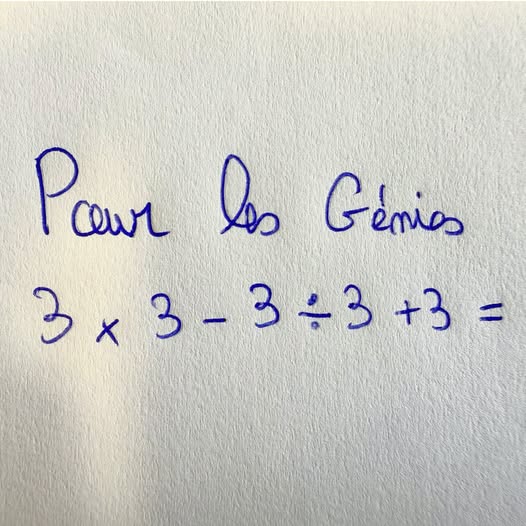 Pour les Génies
3 × 3 - 3 ÷ 3 + 3 =